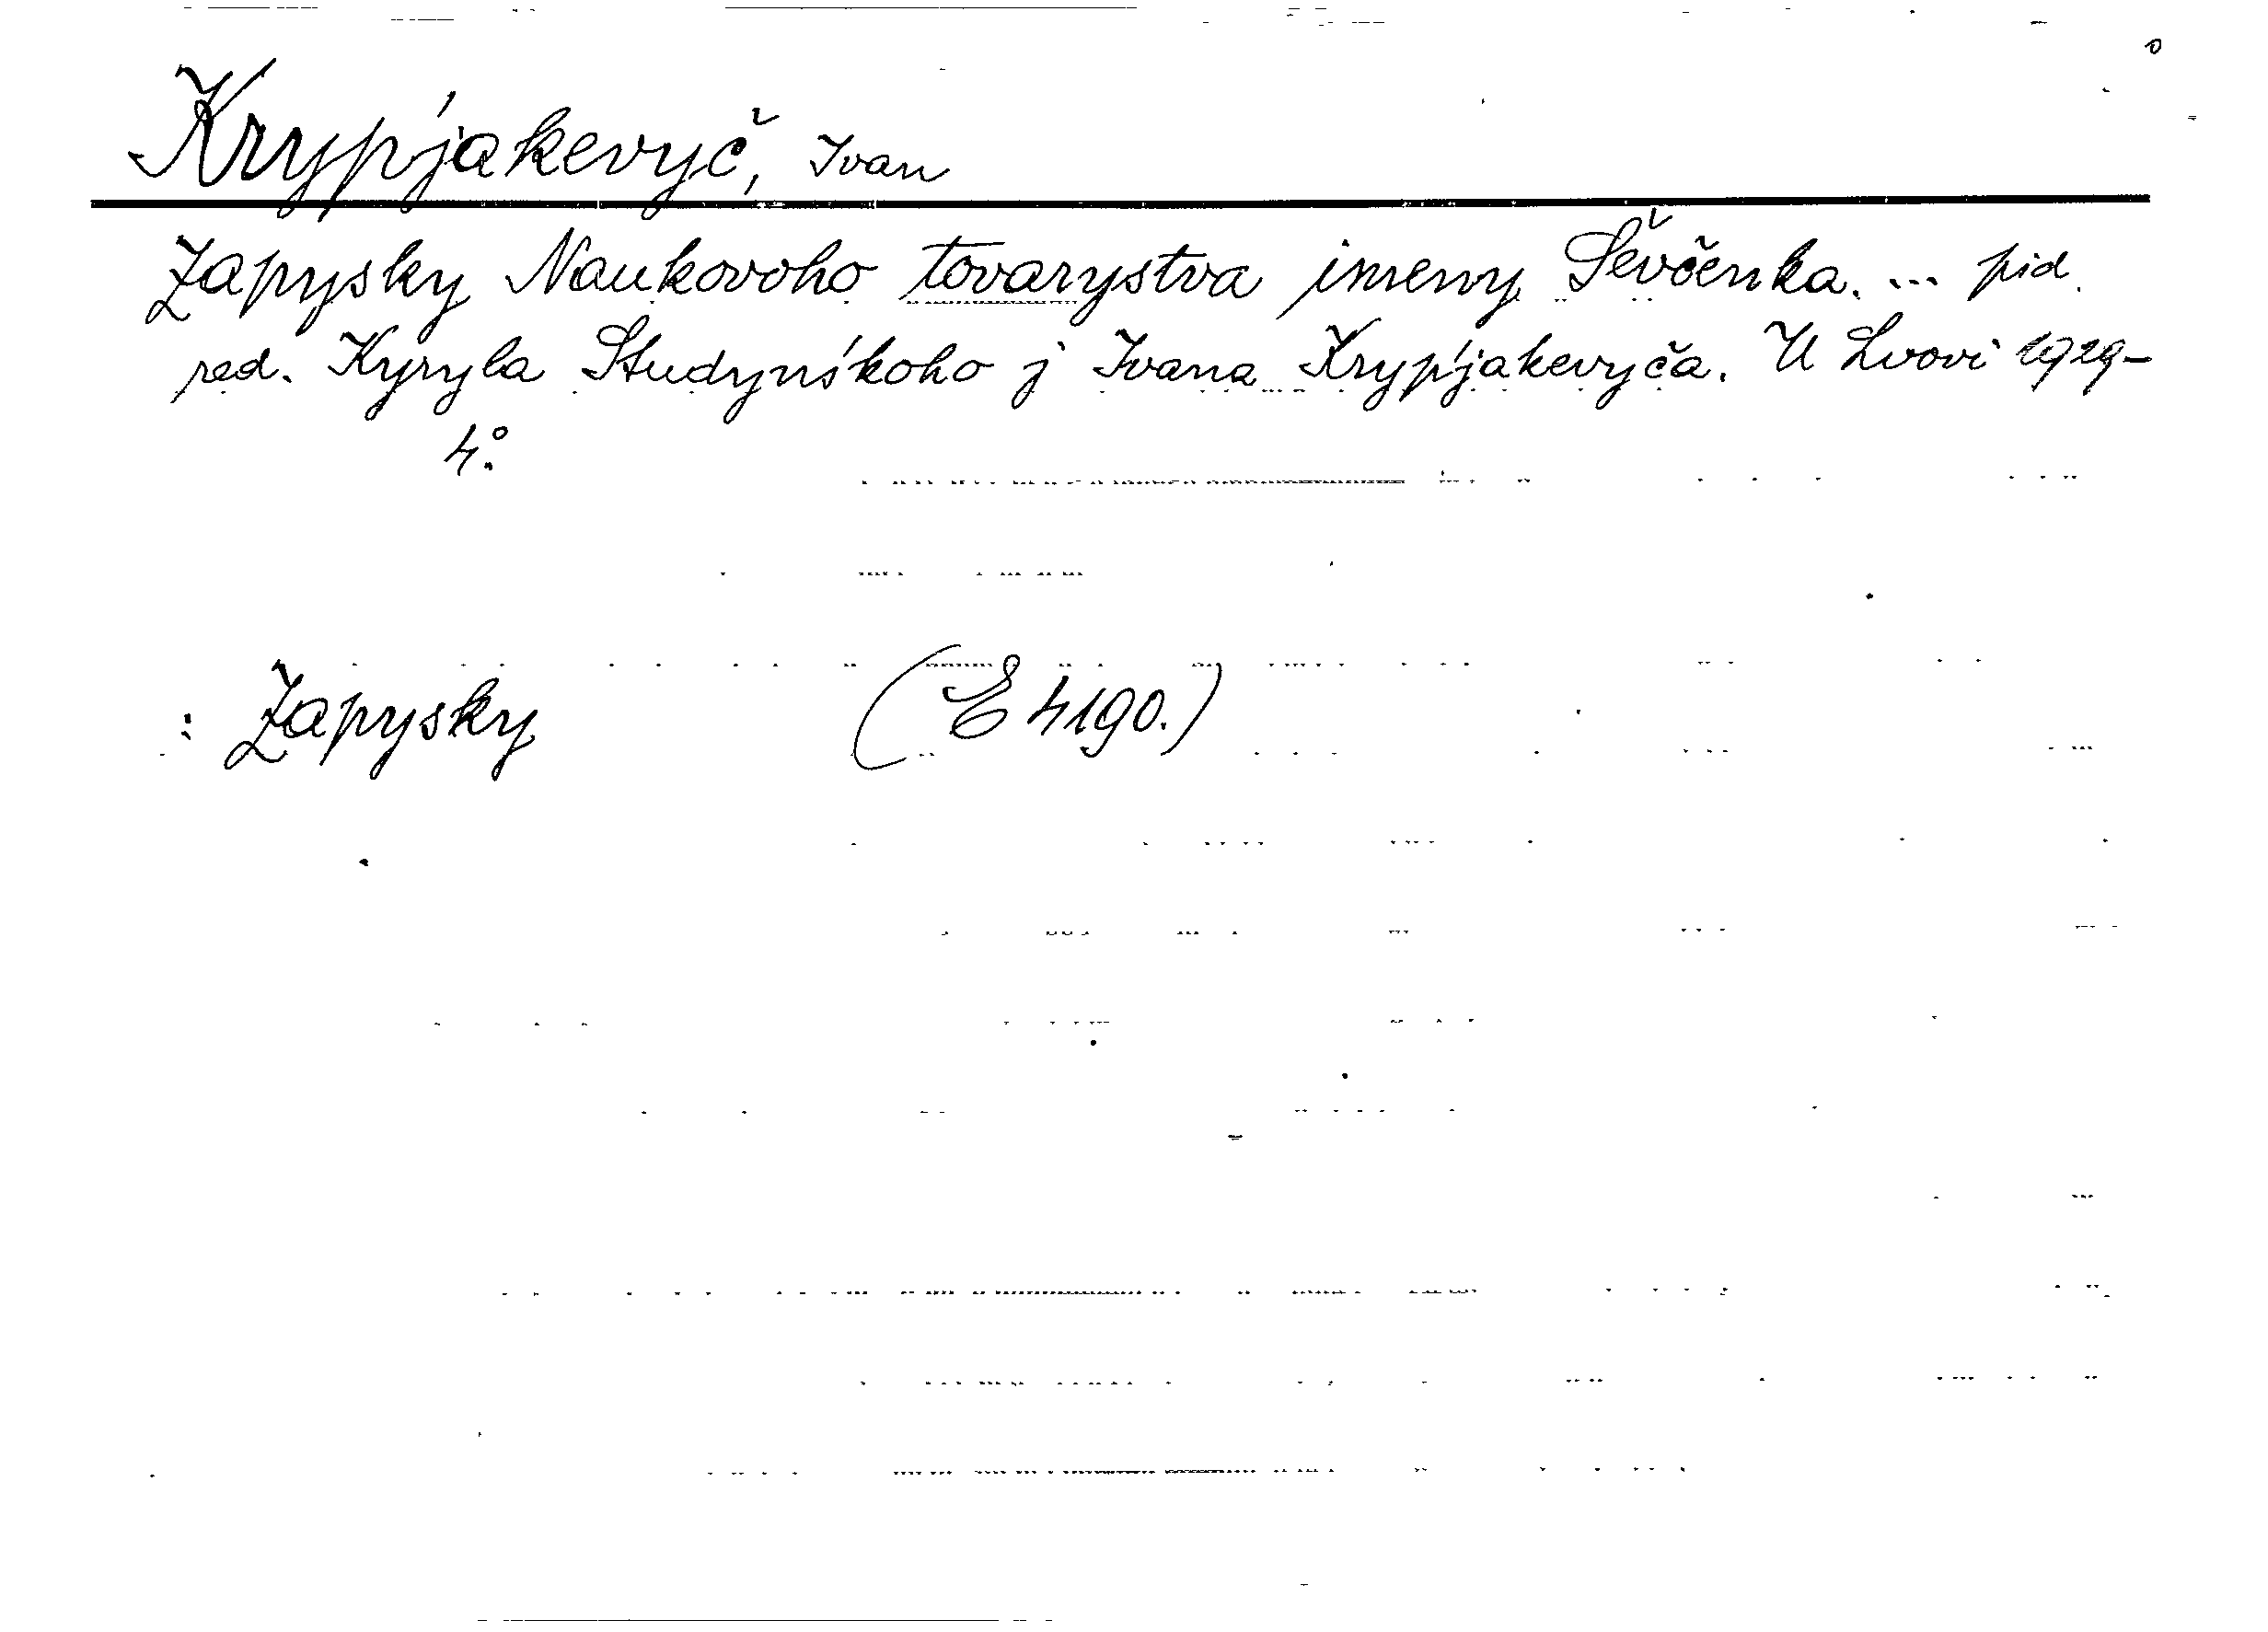 Kryp'jakevyč, Ivan
Zapysky Naukovoho tovarystva imeny Ševčenka. ... pid
red. Kyryla Studyńskoho j Ivana Kryp'jakevyča. U Lvovi 1929-
4°.
: Zapysky (E 4190.)